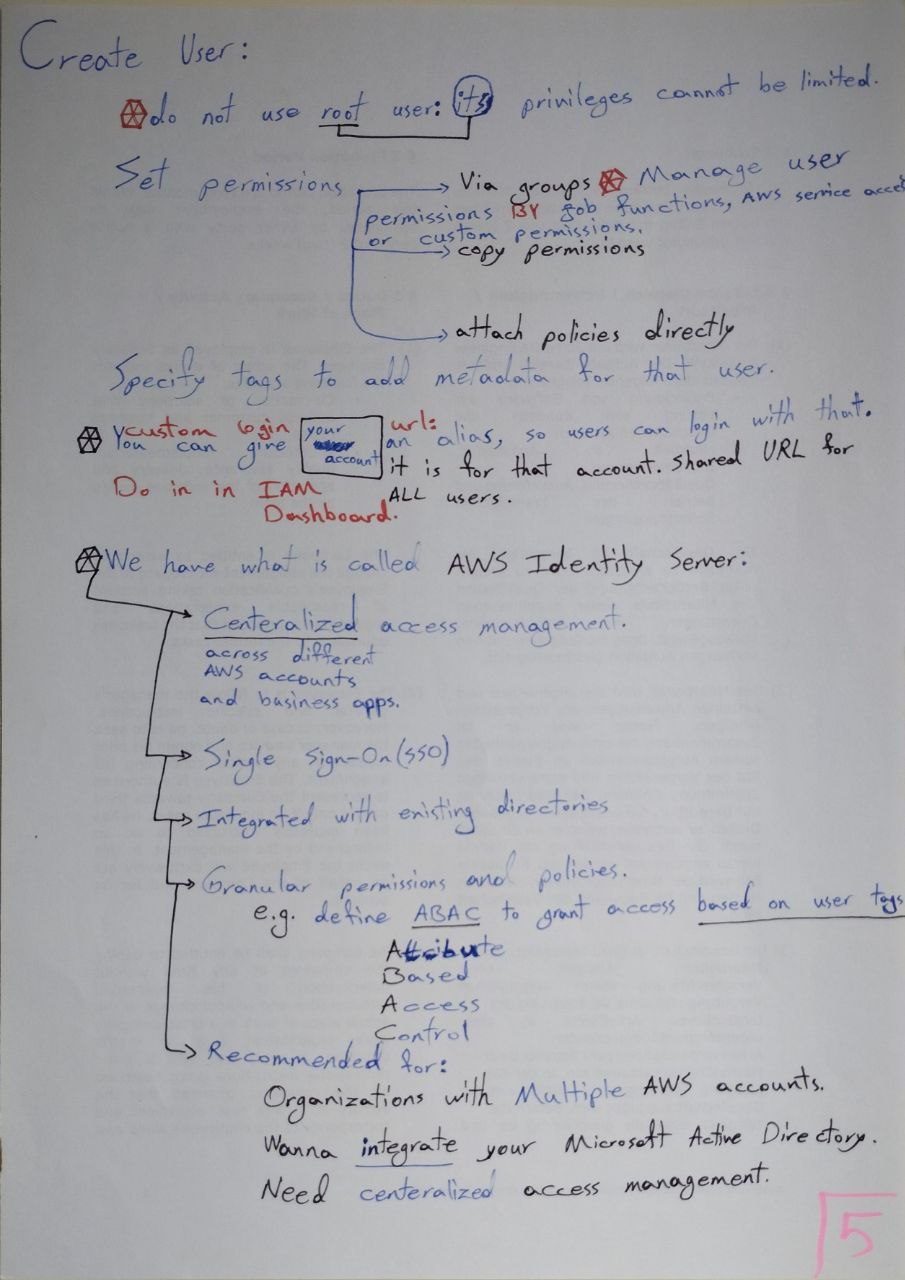 Create User:
do not use root user: its privileges cannot be limited.
Set permissions
Via groups Manage user
permissions BY job functions, AWS service acce
or custom permissions.
copy permissions
attach policies directly
Specify tags to add metadata for that user.
custom login url:
You can give your account an alias, so users can login with that.
it is for that account. Shared URL for
ALL users.
Do in in IAM
Dashboard.
We have what is called AWS Identity Server:
Centeralized access management.
across different
AWS accounts
and business apps.
Single Sign-On (SSO)
Integrated with existing directories
Granular permissions and policies.
e.g. define ABAC to grant access based on user tags
Attribute
Based
Access
Control
Recommended for:
Organizations with Multiple AWS accounts.
Wanna integrate your Microsoft Active Directory.
Need centeralized access management.
5